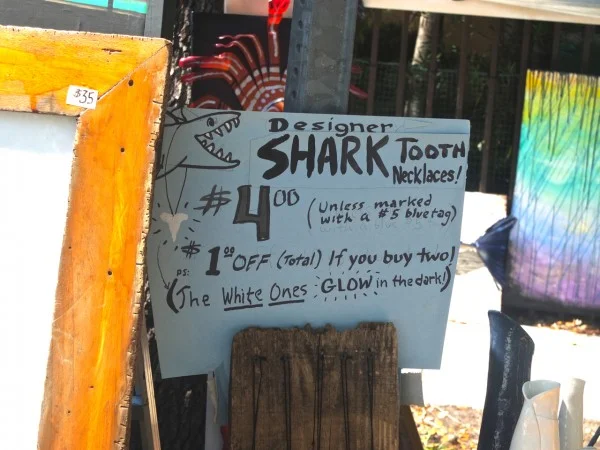 $35
Designer
SHARK TOOTH
Necklaces!
$4.00 (Unless marked
with a #5 blue tag)
$1.00 OFF (Total) If you buy two!
PS:
(The White Ones GLOW in the dark!)